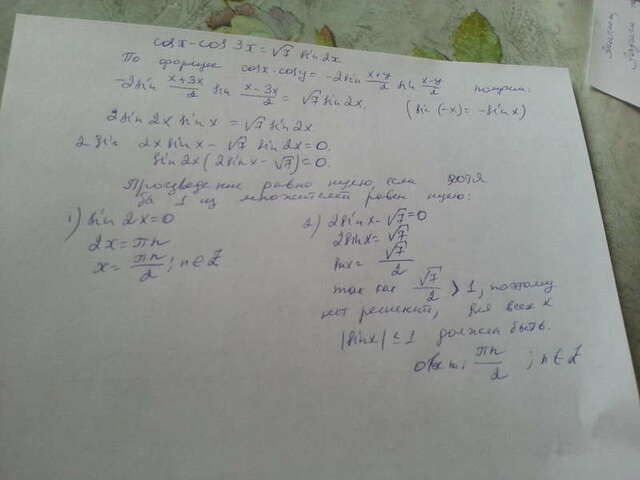 cosx - cos 3x = √7 sin 2x
По формуле cosx - cosy = -2sin (x+y)/2 sin (x-y)/2 получим:
-2sin (x+3x)/2 sin (x-3x)/2 = √7 sin 2x. (sin(-x) = -sin x)
2sin 2x sin x = √7 sin 2x.
2 sin 2x sin x - √7 sin 2x = 0.
sin 2x (2sin x - √7) = 0.
Произведение равно нулю, если хотя
бы 1 из множителей равен нулю:
1) sin 2x = 0
2x = πn
x = πn/2 ; n ∈ Z
2) 2sin x - √7 = 0
2sin x = √7
sin x = √7/2
так как √7/2 > 1, поэтому
нет решений, для всех x
|sin x| ≤ 1 должен быть.
Ответ: πn/2 ; n ∈ Z